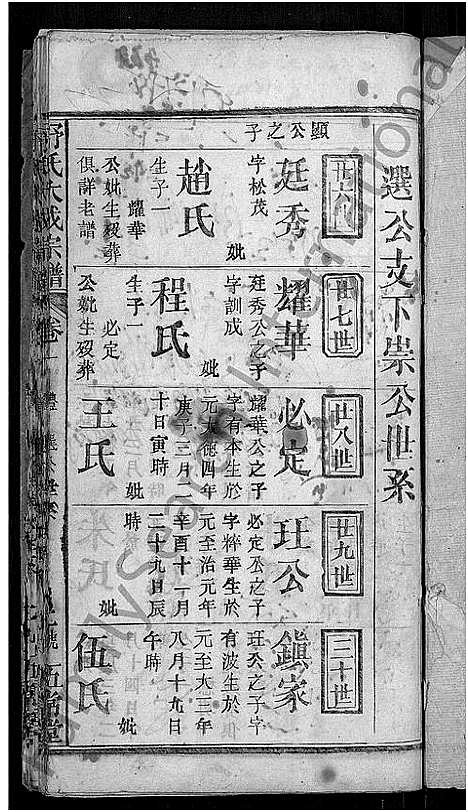 選公支下崇公世系
廿六世
顯公之子
廷秀
字松茂
妣
趙氏
生子一
耀華
公妣生歿葬
俱詳老譜
廿七世
耀華
廷秀公之子
字訓成
妣
程氏
生子一
必定
公妣生歿葬
廿八世
必定
耀華公之子
字有本生於
元大德四年
庚子三月二
十日寅時
妣
王氏
廿九世
玨公
必定公之子
字粹華生於
元至治元年
辛酉十一月
二十九日辰
時
妣
三十世
鎮家
玨公之子字
有波生於
元至大三年
八月十九日
午時
妣
伍氏
舒氏大成宗譜
卷一